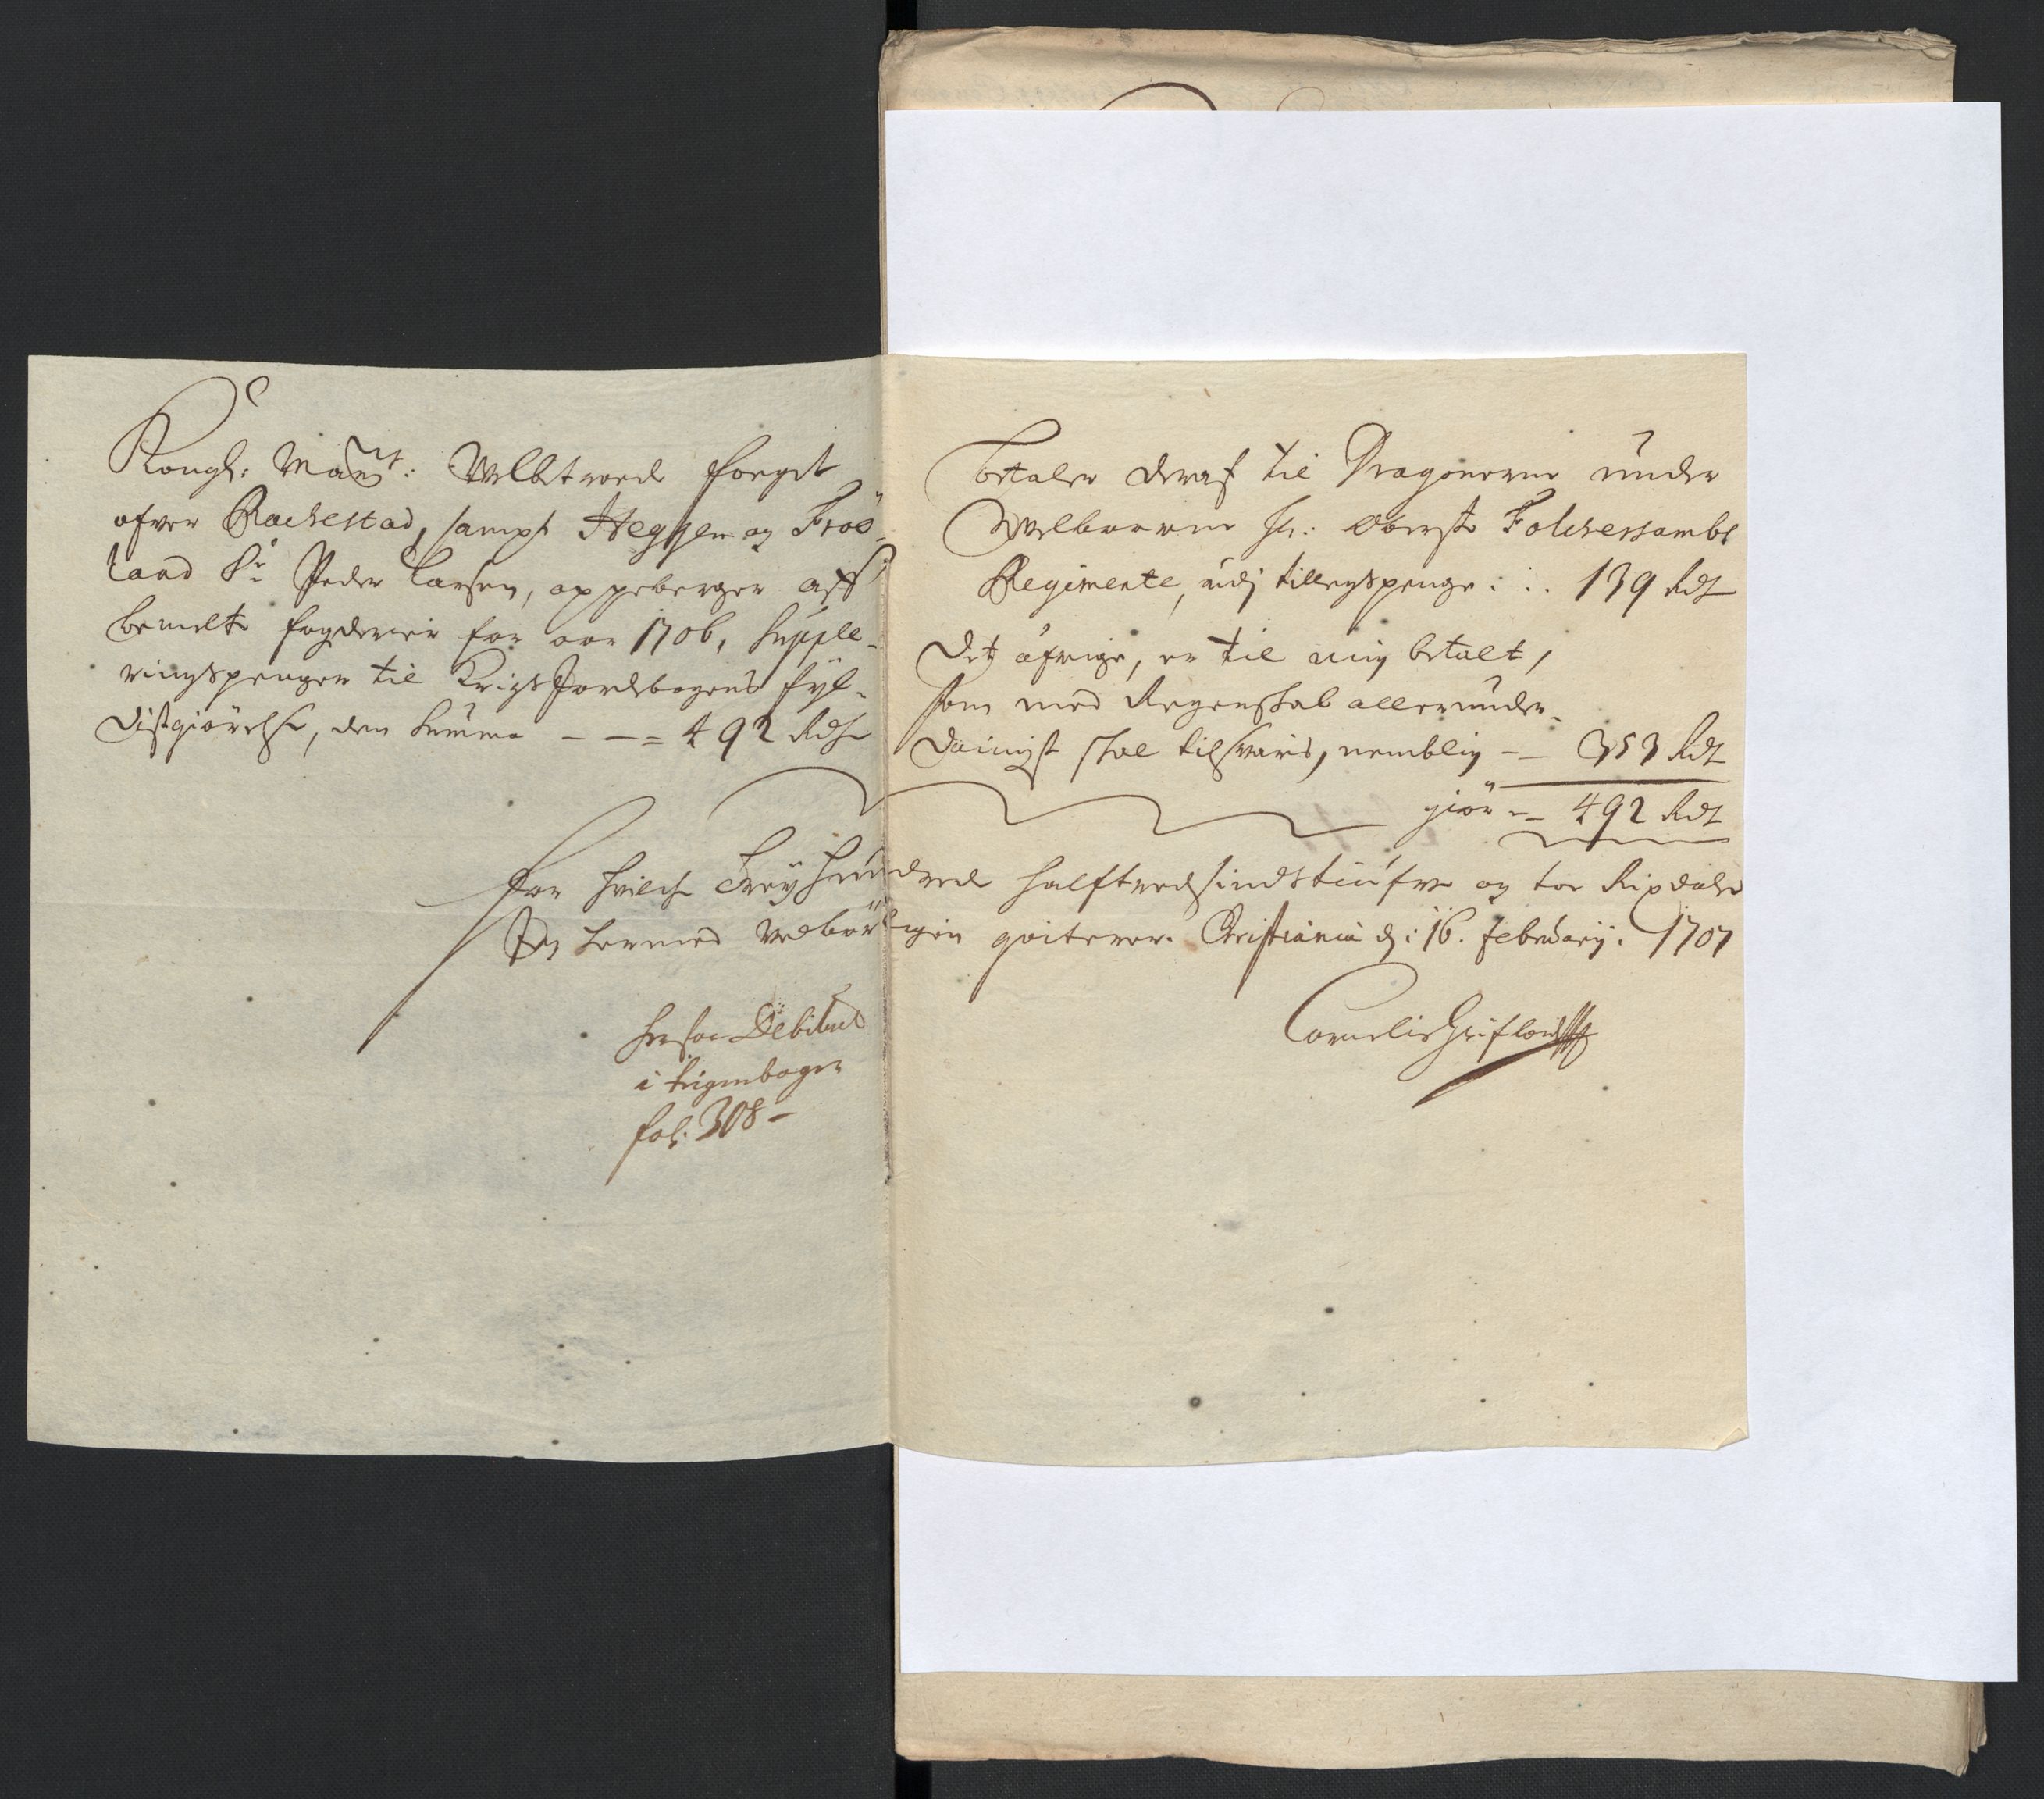 Kongl: Maÿts: Velbtroede foegt
ofver Rachestad, sampt Heggen og Frös-
land Sr Peder Larsen, oppeberger aff
bemelte fogderier for aar 1706, Supple-
ringspenger til Krigs Jordebogens fyl-
distgiörelse, den Summa - - - = 492 Rdr
betaler deraf til Dragonerne under
Welbaarne Hr: Oberste Folchersambs
Regimente, udj tillegspenge : . . 139 Rdr
Det öfrige, er til mig betalt,
som med Regenskab allerunder-
danigst skal tilsvaris, nemblig - - 353 Rdr
giör - - 492 Rdr
For hvilche Fiirehundrede halftredsindstiufve og toe Rixdaler
Jeg hermed vedbörligen qviterer. Christiania d: 16. February: 1707
Cornelis
Debiteret
i bogen
fol: 308 -